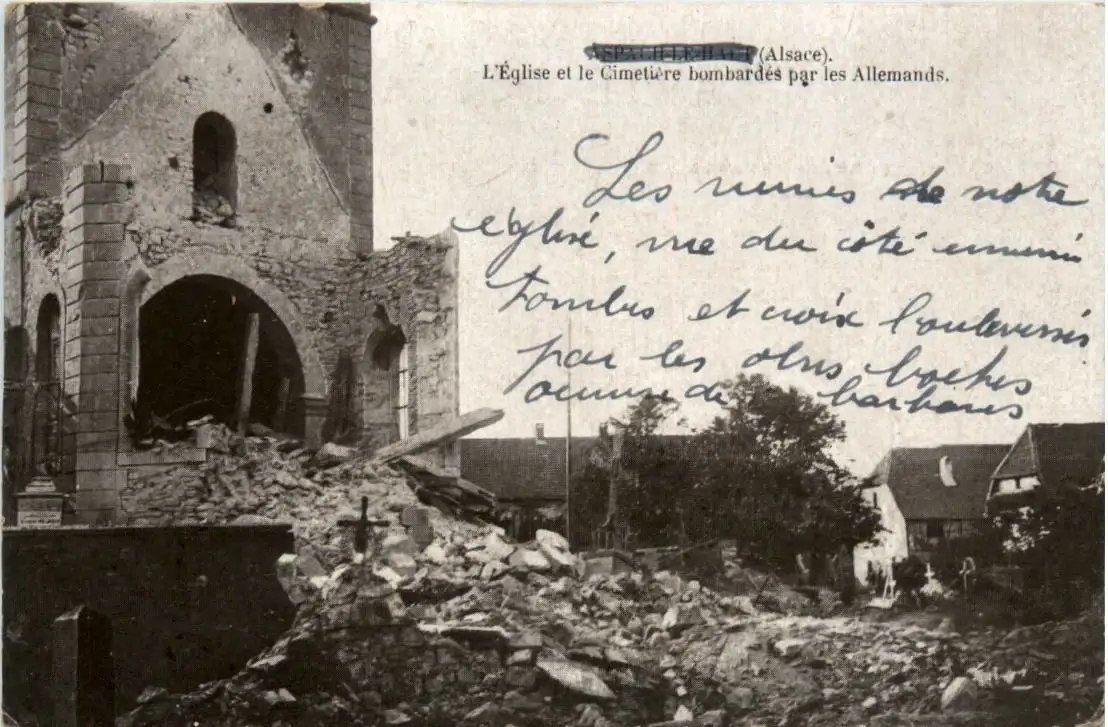 ASPACH-LE-HAUT (Alsace).
L'Église et le Cimetière bombardés par les Allemands.
Les ruines de notre
église, vue du côté ennemi
Tombes et croix bouleversés
par les obus boches
oeuvre de barbares